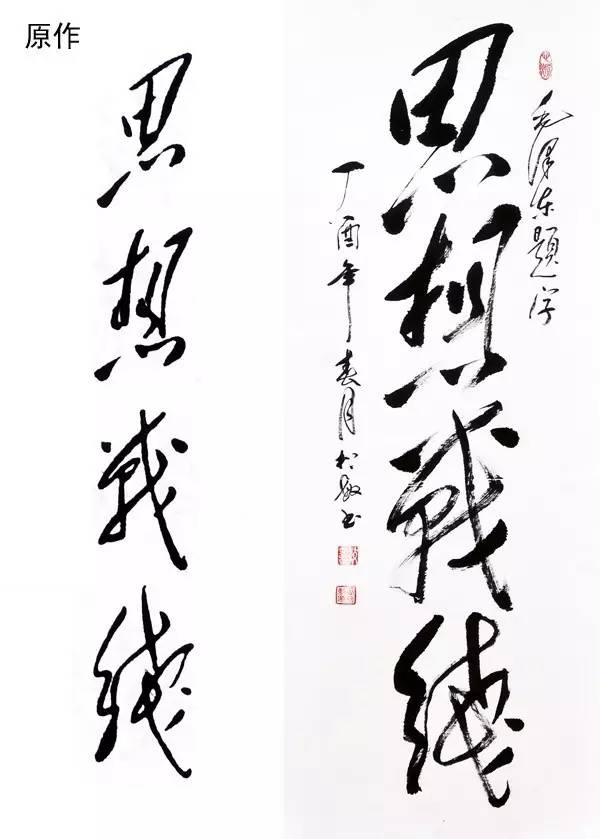 原作
思想戰线
毛泽东題字
思想戰线
丁酉年春月书